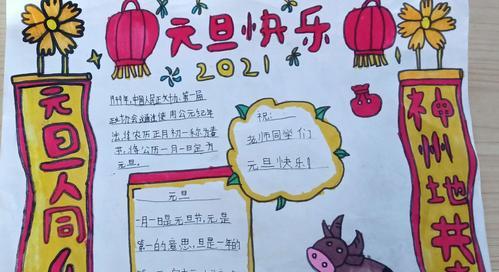 元旦快乐
2021
元旦人同
神州地共
1949年,中国人民 第一届
政协会议通过使用公元纪年
法, 农历正月初一称为春
节,将公历一月一日定为
元旦。
祝:
老师同学们
元旦快乐!
元旦
一月一日是元旦节,元是
第一的意思,旦是一年的